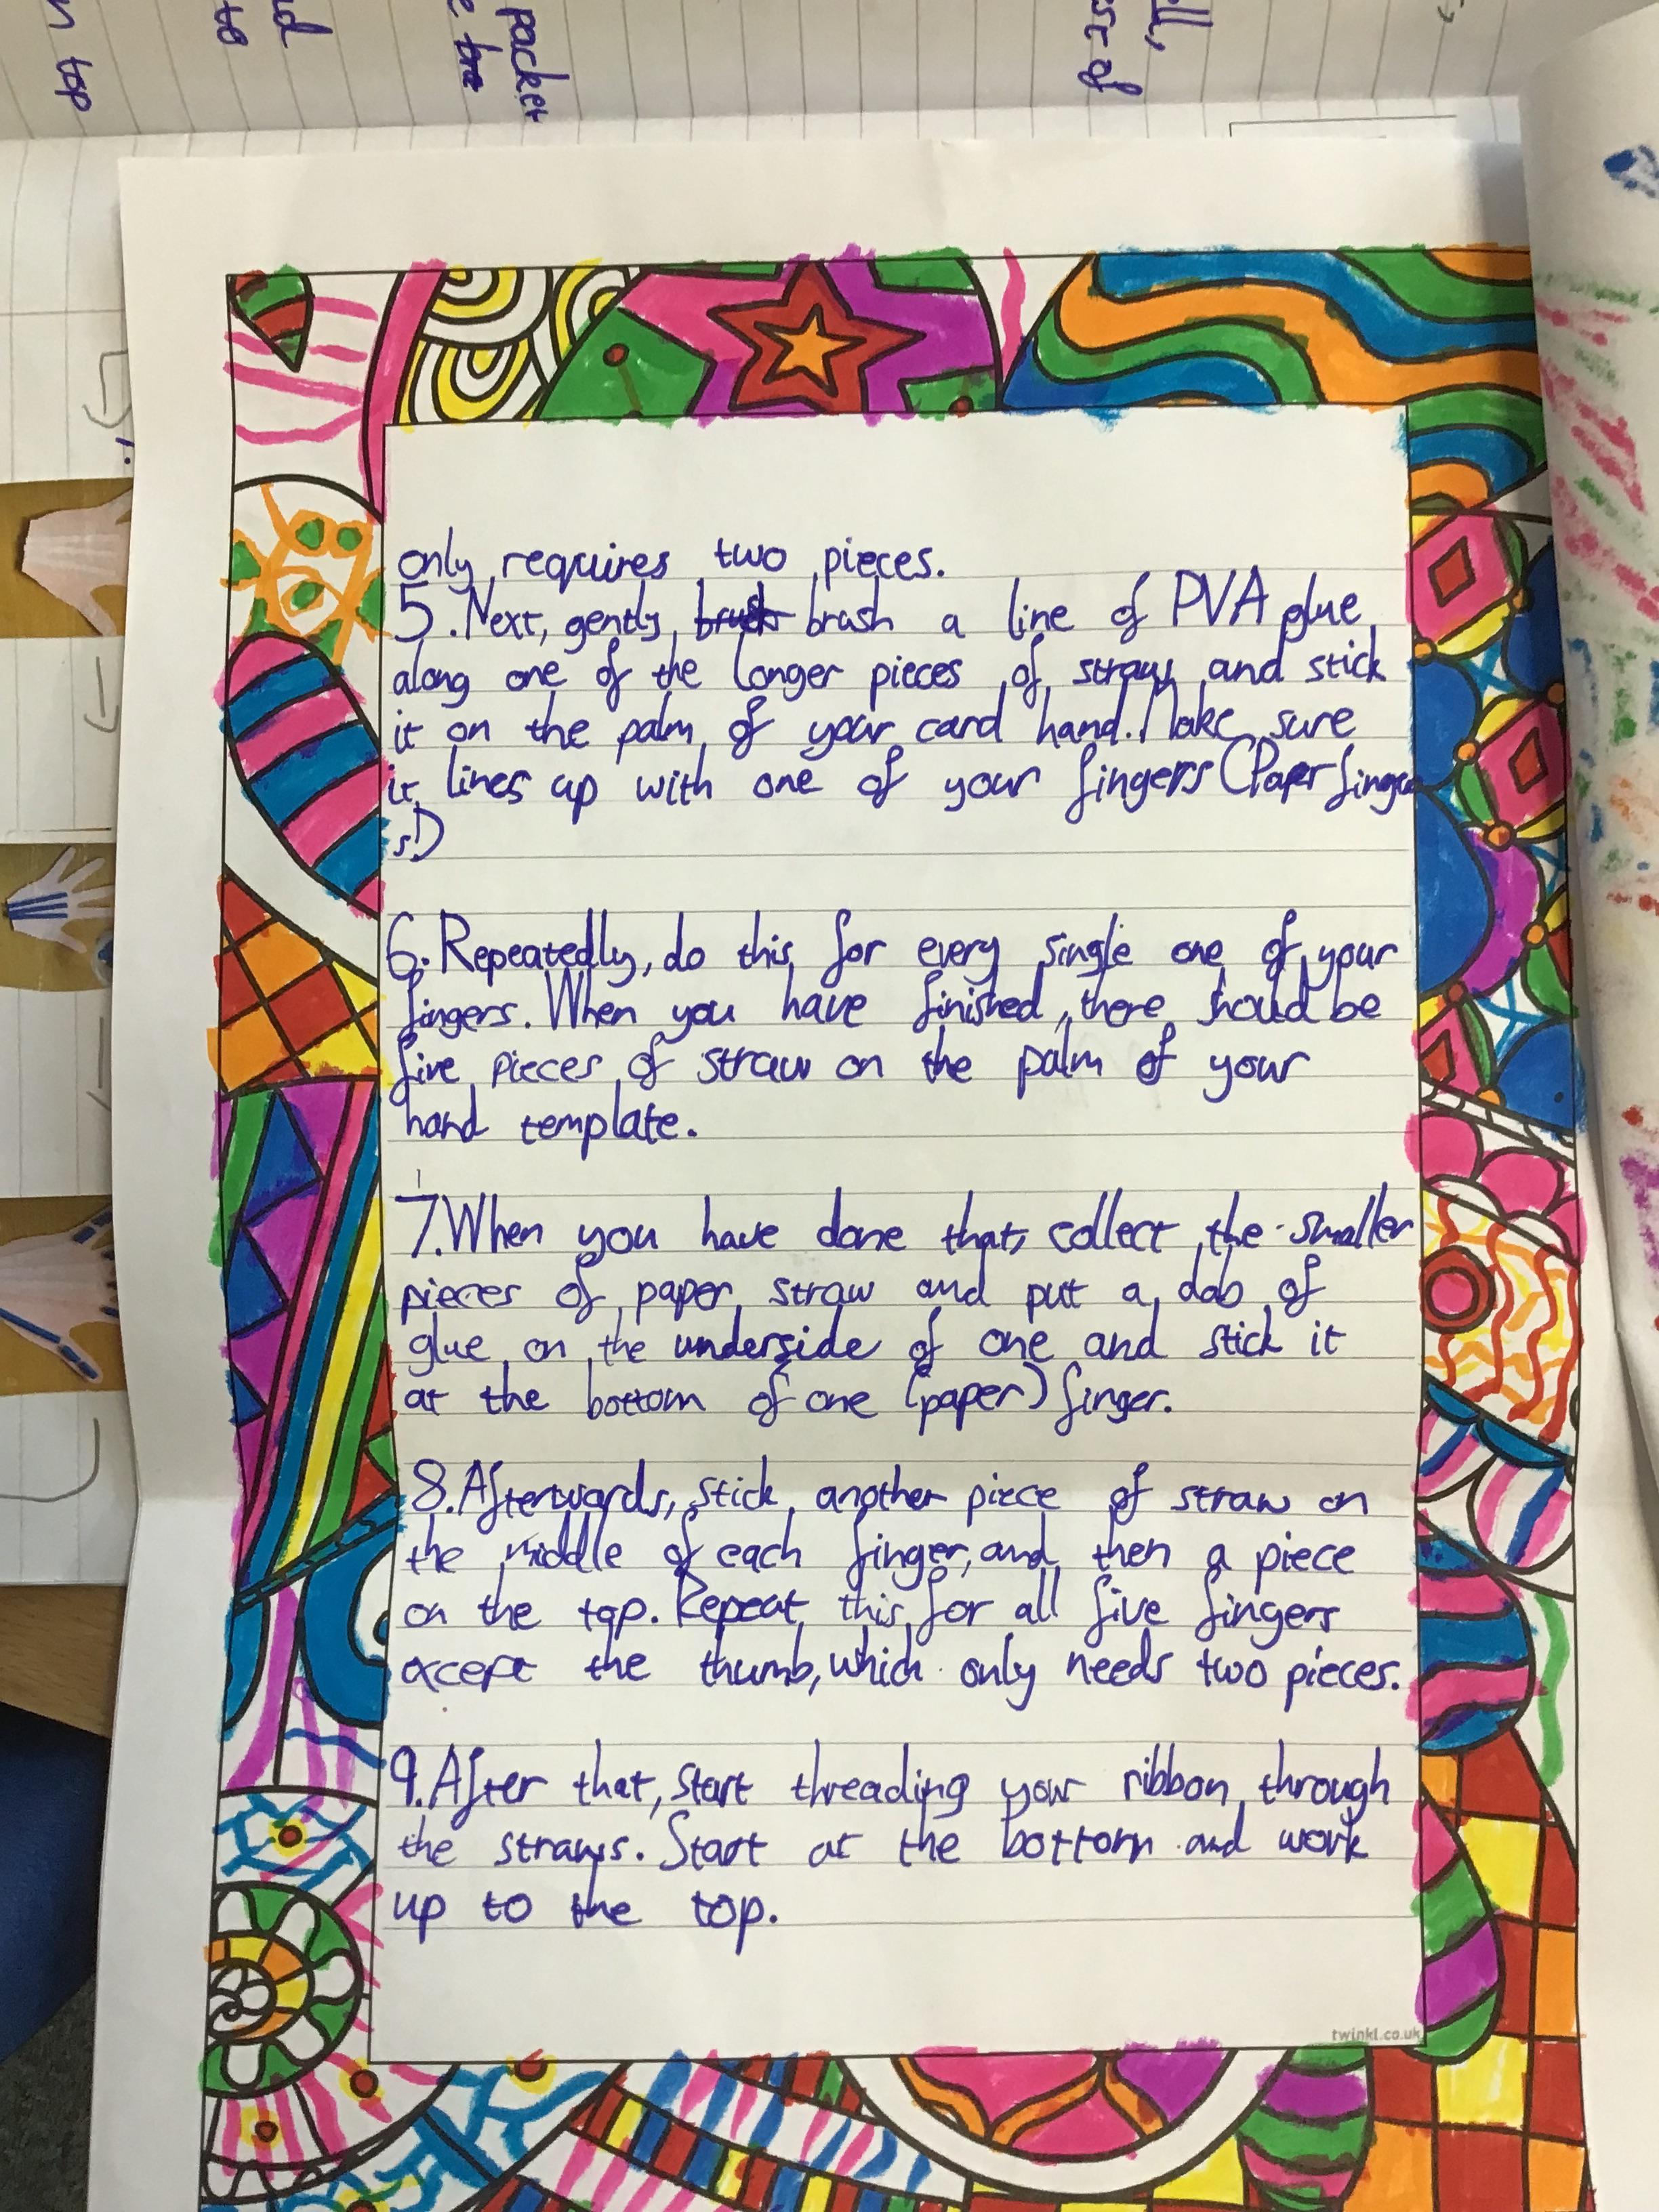 packet
top
only requires two pieces.
5. Next, gently brush brush a line of PVA glue
along one of the longer pieces of straw and stick
it on the palm of your card hand. Make sure
it lines up with one of your fingers (Paper finger
s!)
6. Repeatedly, do this for every single one of your
fingers. When you have finished, there should be
five pieces of straw on the palm of your
hand template.
7. When you have done that, collect the smaller
pieces of paper straw and put a dab of
glue on the underside of one and stick it
at the bottom of one (paper) finger.
8. Afterwards, stick another piece of straw on
the middle of each finger, and then a piece
on the top. Repeat this for all five fingers
except the thumb, which only needs two pieces.
9. After that, start threading your ribbon through
the straws. Start at the bottom and work
up to the top.
twinkl.co.uk